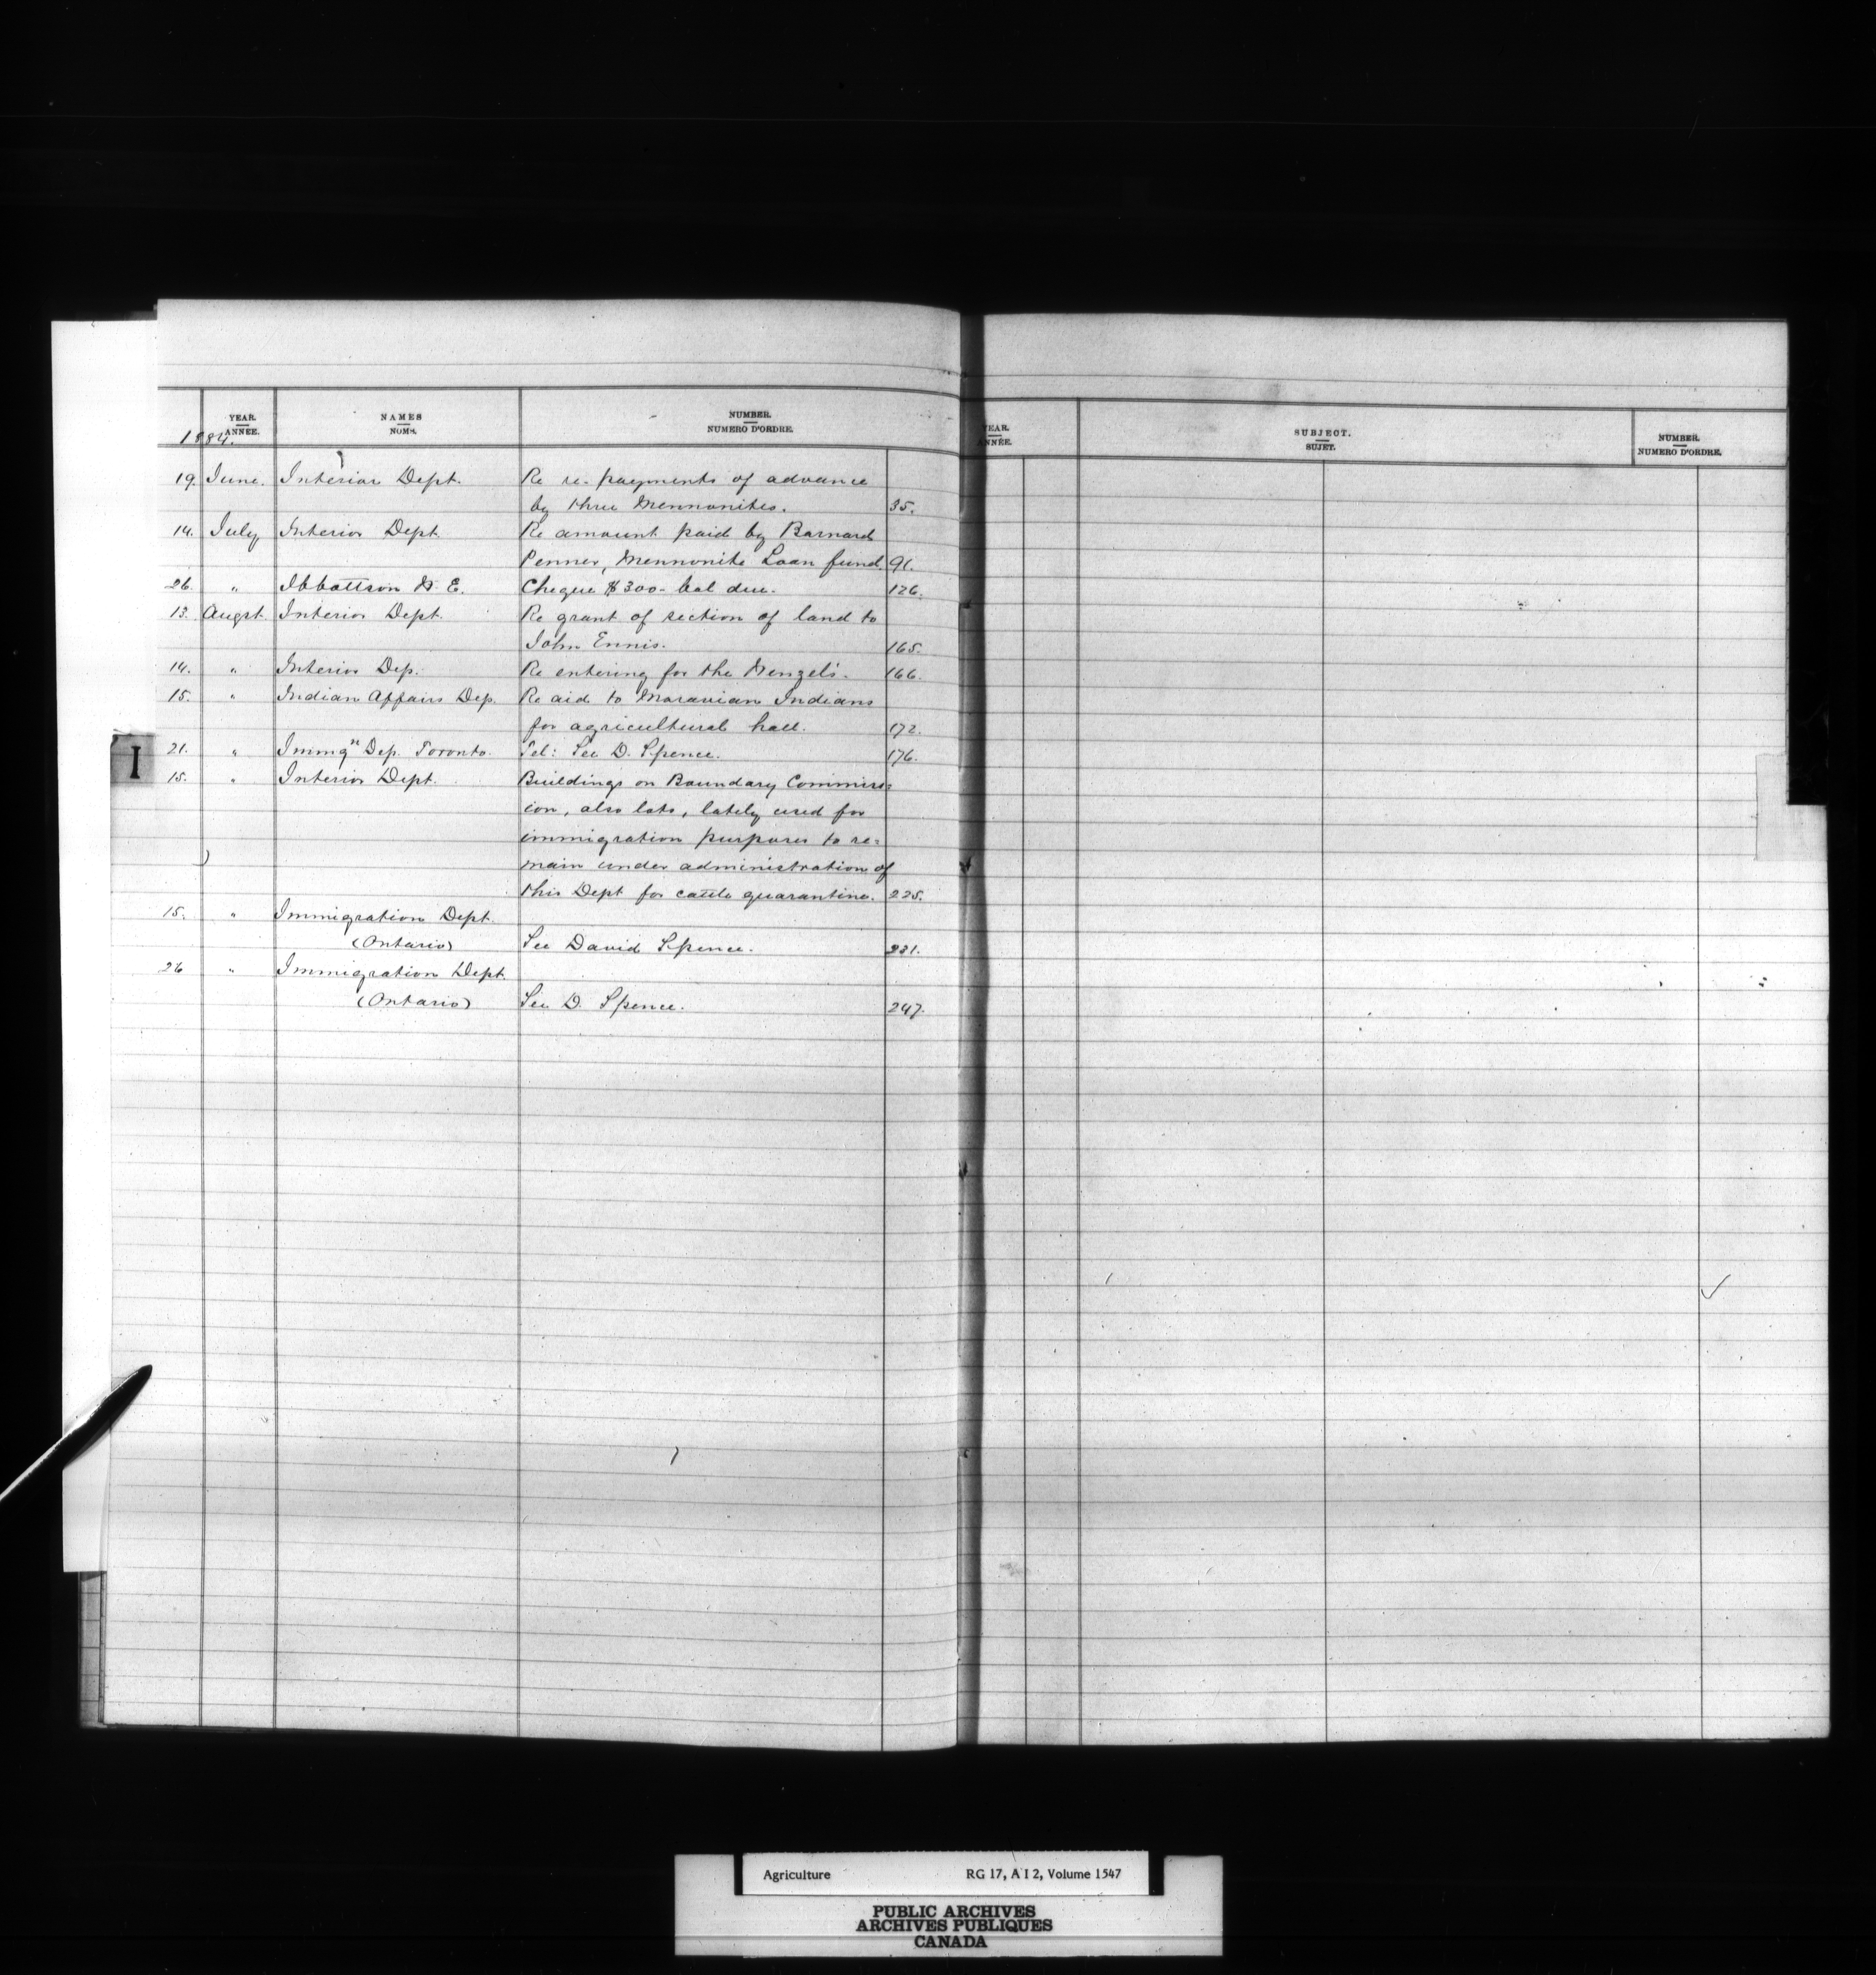 YEAR.
ANNÉE.
NAMES
NOMS.
NUMBER.
NUMERO D'ORDRE.
1884.
19. June. Interior Dept. Re re-payments of advance
by three Mennonites. 35.
14. July Interior Dept. Re amount paid by Barnard
Penner, Mennonite Loan fund. 91.
26. " Ibbottson H. E. Cheque $300- bal due. 126.
13. Augst. Interior Dept. Re grant of section of land to
John Ennis. 165.
14. " Interior Dep. Re entering for the Wenzel's. 166.
15. " Indian Affairs Dep. Re aid to Moravian Indians
for agricultural hall. 172.
21. " Immgn Dep. Toronto. Tel: See D. Spence. 176.
15. " Interior Dept. Buildings on Boundary Commiss=
ion, also lots, lately used for
immigration purposes to re=
main under administration of
this Dept for cattle quarantine. 225.
15. " Immigration Dept.
(Ontario) See David Spence. 231.
26 " Immigration Dept.
(Ontario) See D. Spence. 247.
I
YEAR.
ANNÉE.
SUBJECT.
SUJET.
NUMBER.
NUMERO D'ORDRE.
Agriculture RG 17, A I 2, Volume 1547
PUBLIC ARCHIVES
ARCHIVES PUBLIQUES
CANADA